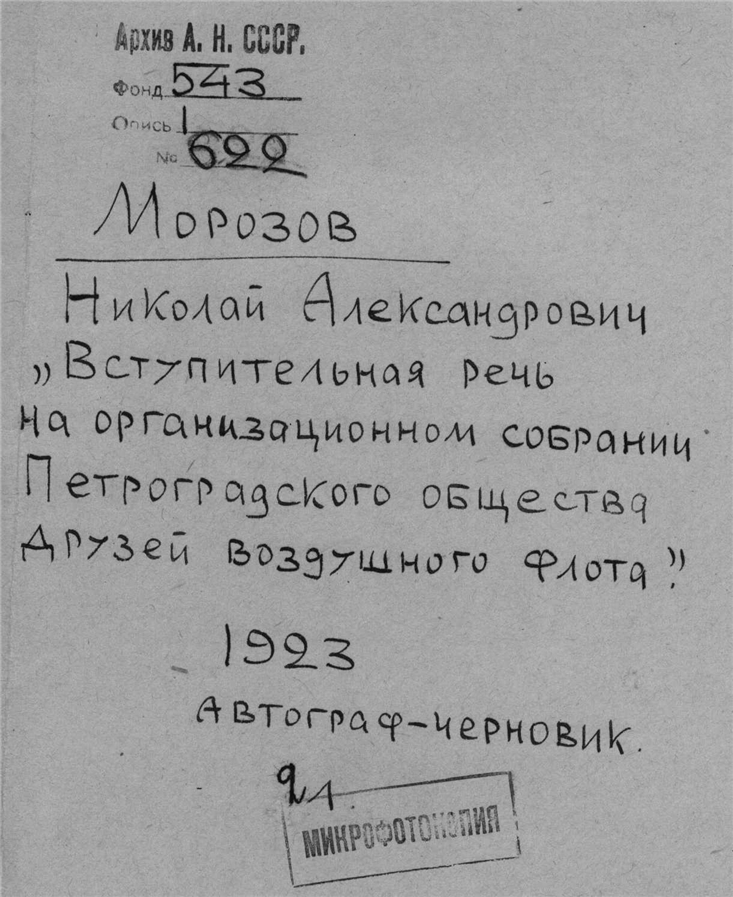 Архив А. Н. СССР.
Фонд 543
Опись 1
№ 622
Морозов
Николай Александрович
„Вступительная речь
на организационном собрании
Петроградского общества
друзей воздушного флота".
1923
Автограф-черновик.
2 л.
МИКРОФОТОКОПИЯ